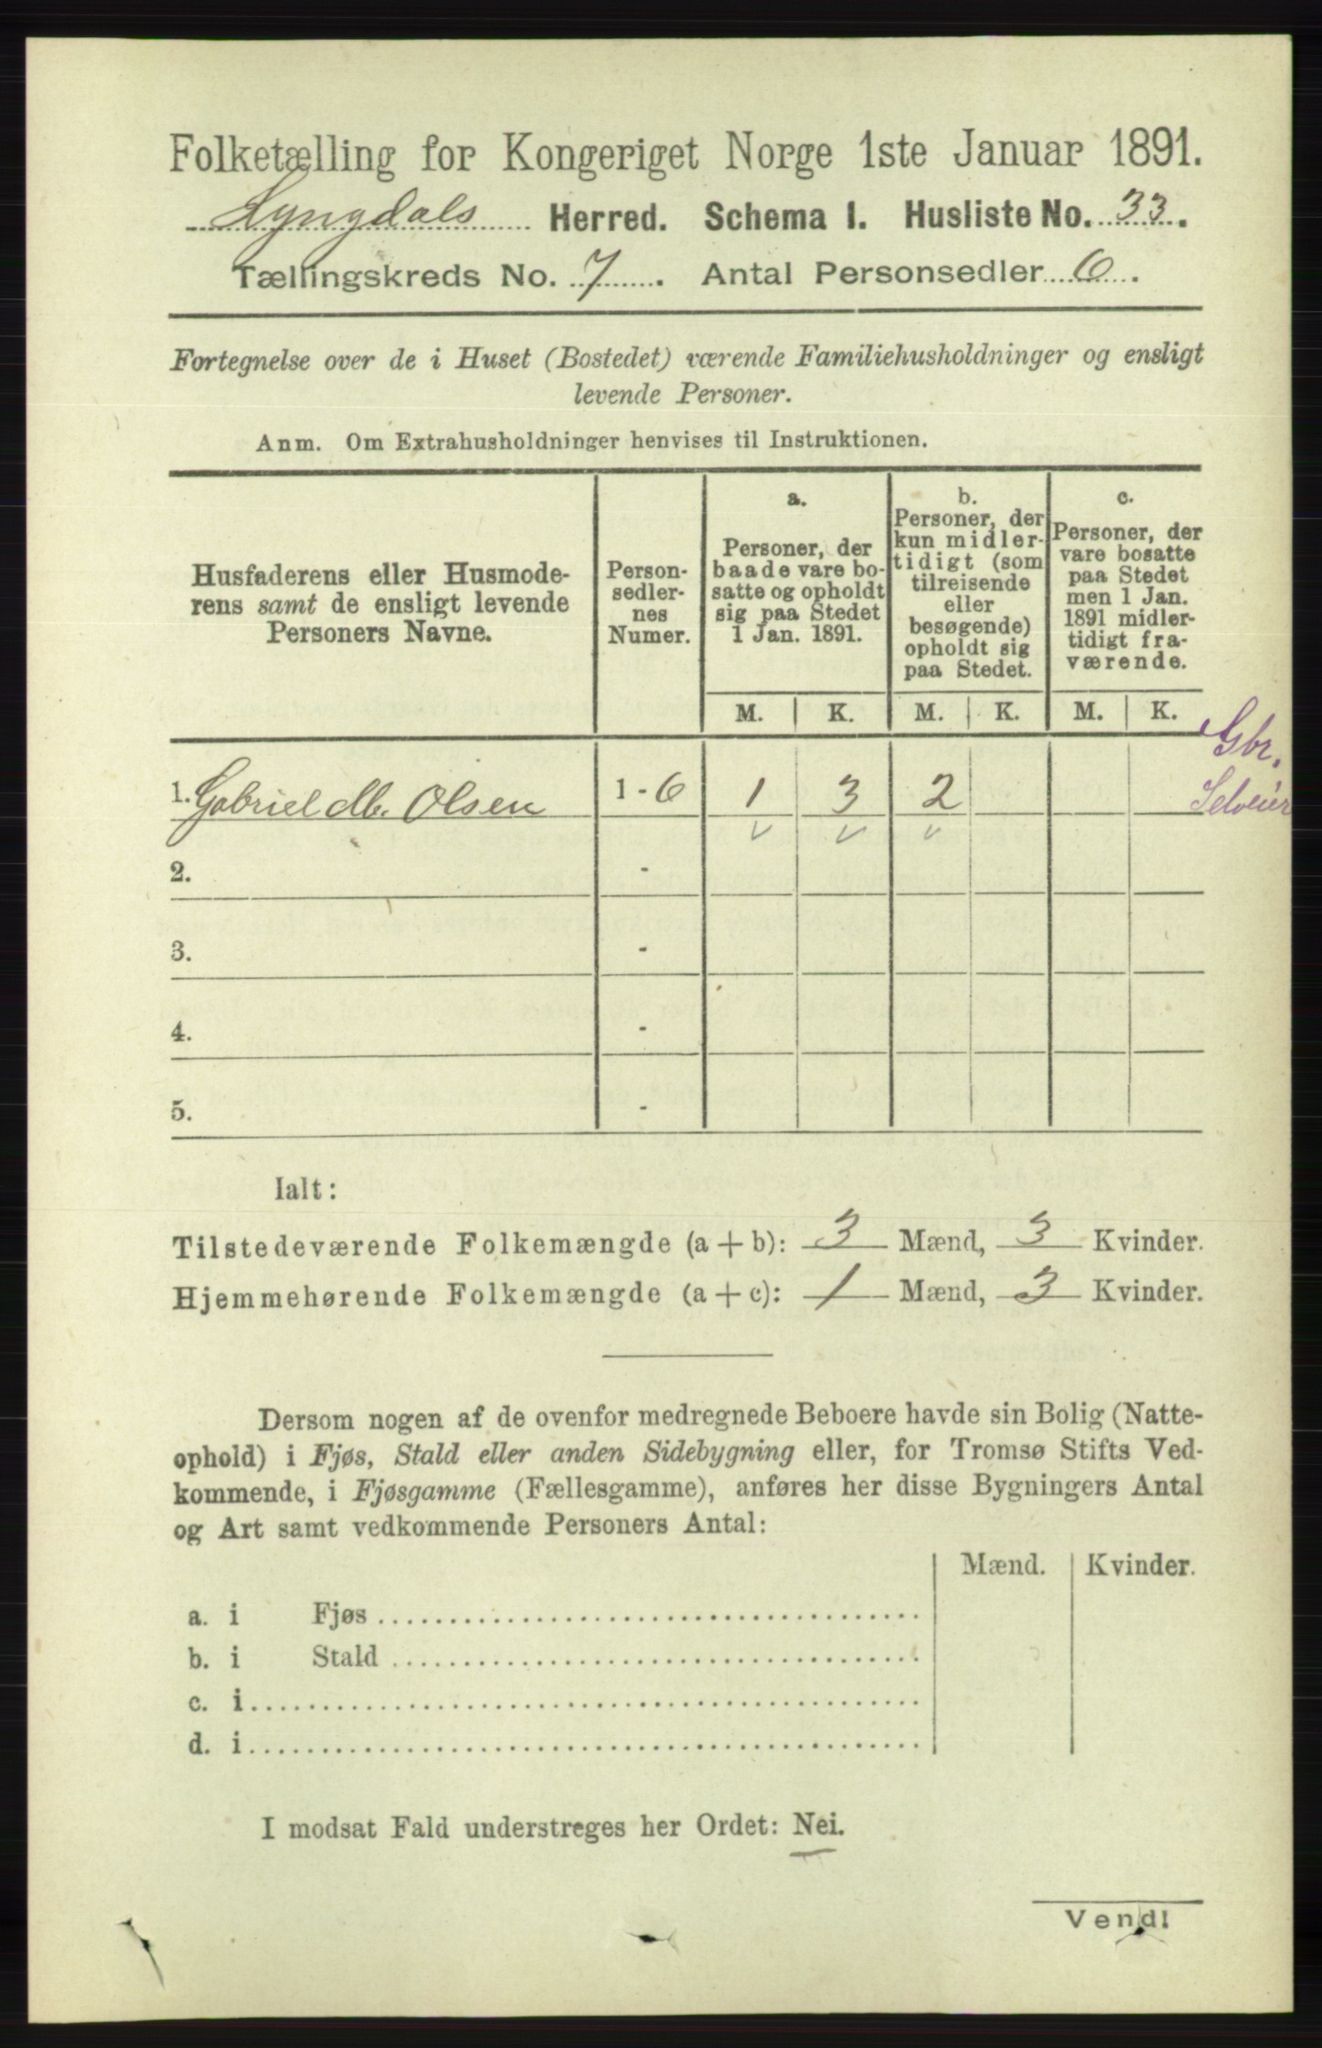 Folketælling for Kongeriget Norge 1ste Januar 1891.
Lyngdals Herred. Schema I. Husliste No. 33.
Tællingskreds No. 7. Antal Personsedler 6.
Fortegnelse over de i Huset (Bostedet) værende Familiehusholdninger og ensligt
levende Personer.
Anm. Om Extrahusholdninger henvises til Instruktionen.
Husfaderens eller Husmode-
rens samt de ensligt levende
Personers Navne.
Person-
sedler-
nes
Numer.
a.
Personer, der
baade vare bo-
satte og opholdt
sig paa Stedet
1 Jan. 1891.
b.
Personer, der
kun midler-
tidigt (som
tilreisende
eller
besøgende)
opholdt sig
paa Stedet.
c.
Personer, der
vare bosatte
paa Stedet
men 1 Jan.
1891 midler-
tidigt fra-
værende.
M. K. M. K. M. K.
Gbr.
Selveier
1. Gabriel M. Olsen 1 - 6 1 3 2
2. -
3. -
4. -
5. -
Ialt:
Tilstedeværende Folkemængde (a + b): 3 Mænd, 3 Kvinder.
Hjemmehørende Folkemængde (a + c): 1 Mænd, 3 Kvinder.
Dersom nogen af de ovenfor medregnede Beboere havde sin Bolig (Natte-
ophold) i Fjøs, Stald eller anden Sidebygning eller, for Tromsø Stifts Ved-
kommende, i Fjøsgamme (Fællesgamme), anføres her disse Bygningers Antal
og Art samt vedkommende Personers Antal:
Mænd. Kvinder.
a. i Fjøs
b. i Stald
c. i
d. i
I modsat Fald understreges her Ordet: Nei.
Vend!